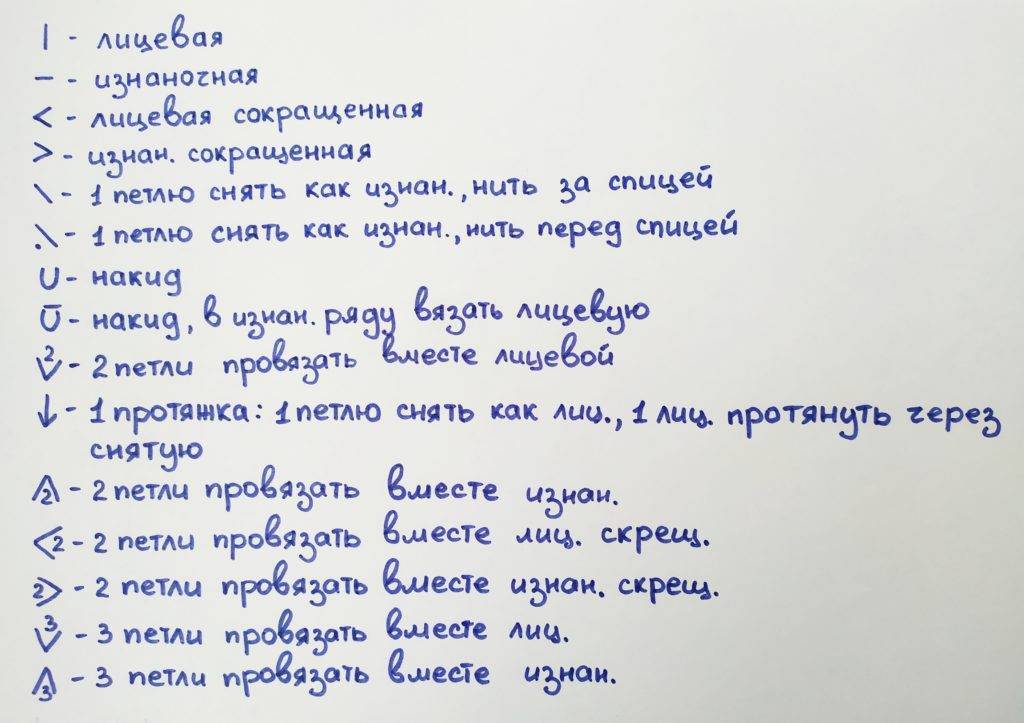 | - лицевая
— - изнаночная
< - лицевая сокращенная
> - изнан. сокращенная
\ - 1 петлю снять как изнан., нить за спицей
.\ - 1 петлю снять как изнан., нить перед спицей
U - накид
Ū - накид, в изнан. ряду вязать лицевую
V2 - 2 петли провязать вместе лицевой
↓ - 1 протяжка: 1 петлю снять как лиц., 1 лиц. протянуть через
снятую
Λ2 - 2 петли провязать вместе изнан.
<2 - 2 петли провязать вместе лиц. скрещ.
2> - 2 петли провязать вместе изнан. скрещ.
V3 - 3 петли провязать вместе лиц.
Λ3 - 3 петли провязать вместе изнан.